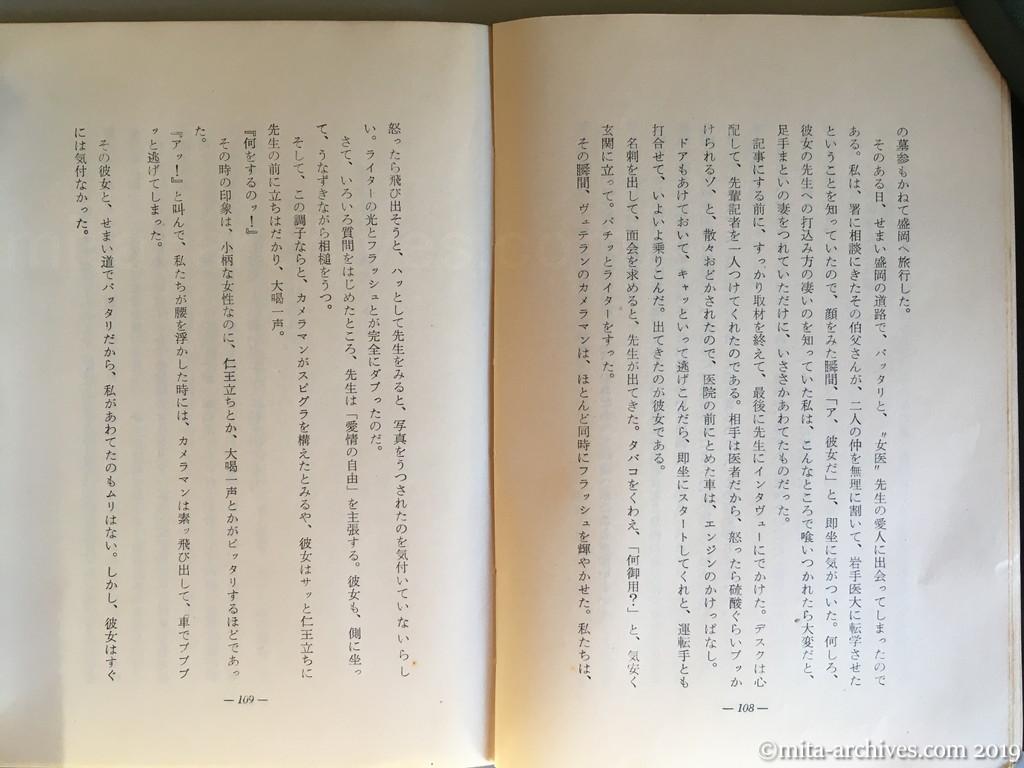 の墓参もかねて盛岡へ旅行した。
　そのある日、せまい盛岡の道路で、バッタリと、〝女医〟先生の愛人に出会ってしまったので
ある。私は、署に相談にきたその伯父さんが、二人の仲を無理に割いて、岩手医大に転学させた
ということを知っていたので、顔をみた瞬間、「ア、彼女だ」と、即坐に気がついた。何しろ、
彼女の先生への打込み方の凄いのを知っていた私は、こんなところで喰いつかれたら大変だと、
足手まといの妻をつれていただけに、いささかあわてたものだった。
　記事にする前に、すっかり取材を終えて、最後に先生にインタヴューにでかけた。デスクは心
配して、先輩記者を一人つけてくれたのである。相手は医者だから、怒ったら硫酸ぐらいブッか
けられるゾ、と、散々おどかされたので、医院の前にとめた車は、エンジンのかけっぱなし。
　ドアもあけておいて、キャッといって逃げこんだら、即坐にスタートしてくれと、運転手とも
打合せて、いよいよ乗りこんだ。出てきたのが彼女である。
　名刺を出して、面会を求めると、先生が出てきた。タバコをくわえ、「何御用？」と、気安く
玄関に立って。パチッとライターをすった。
　その瞬間、ヴェテランのカメラマンは、ほとんど同時にフラッシュを輝やかせた。私たちは、
— 108 —
怒ったら飛び出そうと、ハッとして先生をみると、写真をうつされたのを気付いていないらし
い。ライターの光とフラッシュとが完全にダブったのだ。
　さて、いろいろ質問をはじめたところ、先生は「愛情の自由」を主張する。彼女も、側に坐っ
て、うなずきながら相槌をうつ。
　そして、この調子ならと、カメラマンがスピグラを構えたとみるや、彼女はサッと仁王立ちに
先生の前に立ちはだかり、大喝一声。
『何をするのッ！』
　その時の印象は、小柄な女性なのに、仁王立ちとか、大喝一声とかがピッタリするほどであっ
た。
『アッ！』と叫んで、私たちが腰を浮かした時には、カメラマンは素ッ飛び出して、車でブブブ
ッと逃げてしまった。
　その彼女と、せまい道でバッタリだから、私があわてたのもムリはない。しかし、彼女はすぐ
には気付なかった。
— 109 —
©mita-archives.com 2019